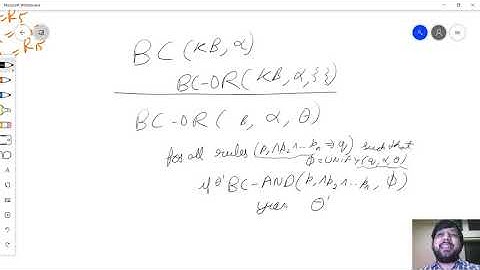 Microsoft Whiteboard
= R5
= R5
BC (KB, α)
BC-OR (KB, α, { })
BC-OR ( B, α, θ )
for all rules (p₁∧p₂∧...pₙ ⇒ q) such that
ϕ = UNIFY (q, α, θ)
if θ' BC-AND (p₁∧p₂∧...pₙ, ϕ)
θ'